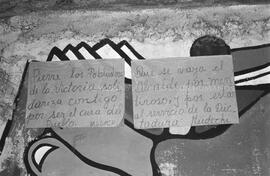 Pierre los Pobladores
de la Victoria soli
dariza contigo
por ser el cura del
Pueblo
Que se vaya el
Alcalde por men
tiroso y por estar
al servicio de la Dic
tadura